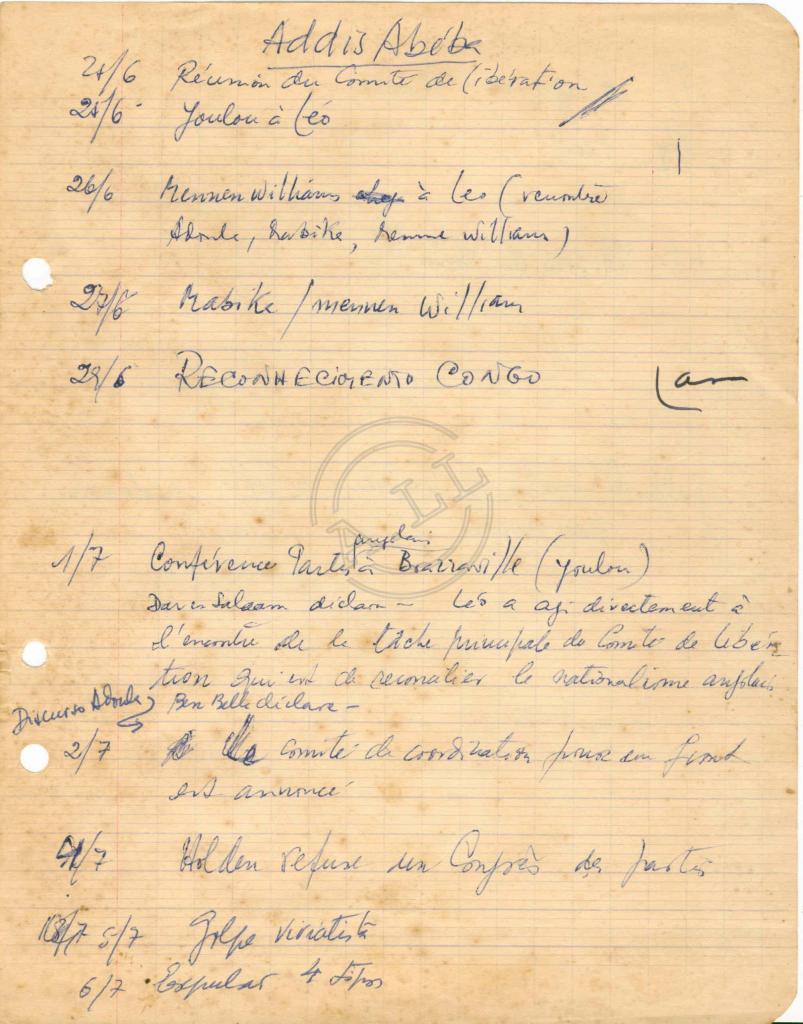 Addis Abéba
25/6 Réunion du Comité de libération
25/6 Youlou à Léo
26/6 Mennen Williams à Leo (rencontre
Adoula, Mabika, Menne William)
27/6 Mabika / mennen William
29/6 RECONHECIMENTO CONGO
angolais
1/7 Conférence Partis à Brazzaville (Youlou)
Dar es Salaam déclare - Léo a agi directement à
l'encontre de la tâche principale du Comité de libéra
tion qui est de réconcilier le nationalisme angolais
Discurso Adoula
Ben Bella déclare -
2/7 comité de coordination pour un front
est annoncé
4/7 Holden refuse un Congrès des partis
5/7 Golpe viriatista
6/7 Expulsar 4 tipos
ALL